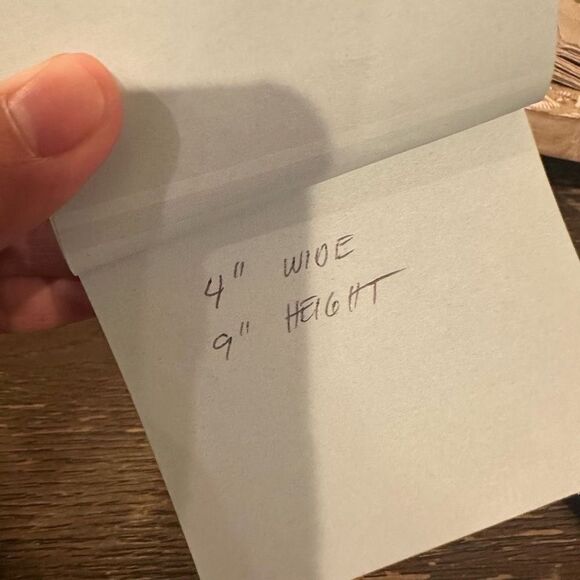 4" WIDE
9" HEIGHT